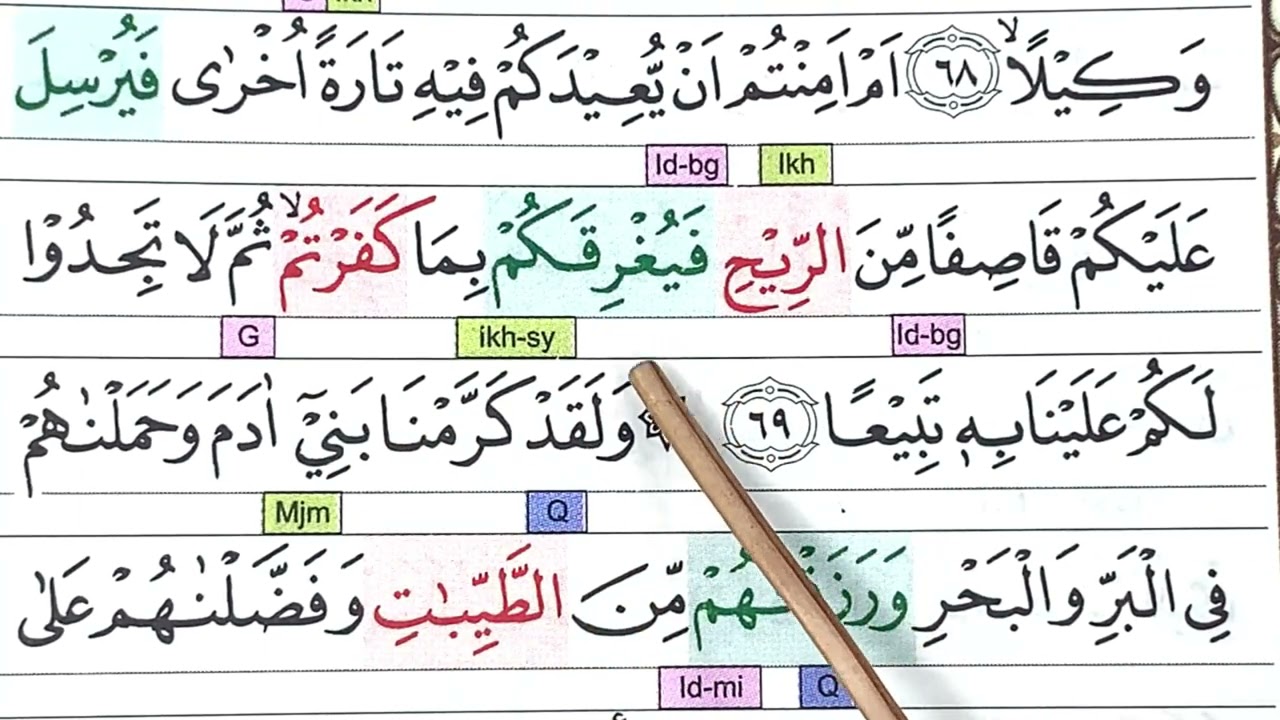 وَكِيْلًاۙ ٦٨ اَمْ اَمِنْتُمْ اَنْ يُّعِيْدَكُمْ فِيْهِ تَارَةً اُخْرٰى فَيُرْسِلَ
Id-bg Ikh
عَلَيْكُمْ قَاصِفًا مِّنَ الرِّيْحِ فَيُغْرِقَكُمْ بِمَا كَفَرْتُمْۙ ثُمَّ لَا تَجِدُوْا
G ikh-sy Id-bg
لَكُمْ عَلَيْنَا بِهٖ تَبِيْعًا ٦٩ وَلَقَدْ كَرَّمْنَا بَنِيْٓ اٰدَمَ وَحَمَلْنٰهُمْ
Mjm Q
فِى الْبَرِّ وَالْبَحْرِ مِّنَ الطَّيِّبٰتِ وَفَضَّلْنٰهُمْ عَلٰى
Id-mi Q